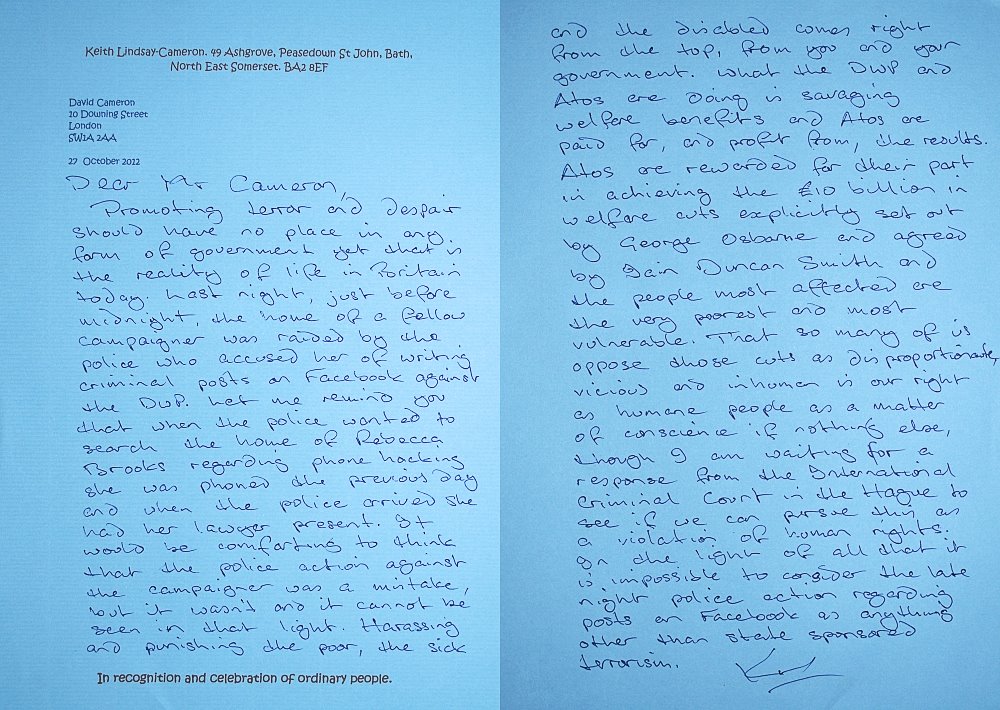 Keith Lindsay-Cameron. 49 Ashgrove, Peasedown St John, Bath,
North East Somerset. BA2 8EF
David Cameron
10 Downing Street
London
SW1A 2AA
27 October 2012
Dear Mr Cameron,
Promoting terror and despair
should have no place in any
form of government yet that is
the reality of life in Britain
today. Last night, just before
midnight, the home of a fellow
campaigner was raided by the
police who accused her of writing
criminal posts on Facebook against
the DWP. Let me remind you
that when the police wanted to
search the home of Rebecca
Brooks regarding phone hacking
she was phoned the previous day
and when the police arrived she
had her lawyer present. It
would be comforting to think
that the police action against
the campaigner was a mistake,
but it wasn't and it cannot be
seen in that light. Harassing
and punishing the poor, the sick
In recognition and celebration of ordinary people.
and the disabled comes right
from the top, from you and your
government. What the DWP and
Atos are doing is savaging
welfare benefits and Atos are
paid for, and profit from, the results.
Atos are rewarded for their part
in achieving the £10 billion in
welfare cuts explicitly set out
by George Osbarne and agreed
by Iain Duncan Smith and
the people most affected are
the very poorest and most
vulnerable. That so many of us
oppose those cuts as disproportionate,
vicious and inhuman is our right
as humane people as a matter
of conscience if nothing else,
though I am waiting for a
response from the International
Criminal Court in the Hague to
see if we can pursue this as
a violation of human rights.
In the light of all that it
is impossible to consider the late
night police action regarding
posts on Facebook as anything
other than state sponsored
terrorism.